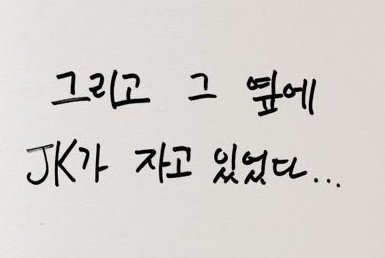 그리고 그 옆에
JK가 자고 있었다...